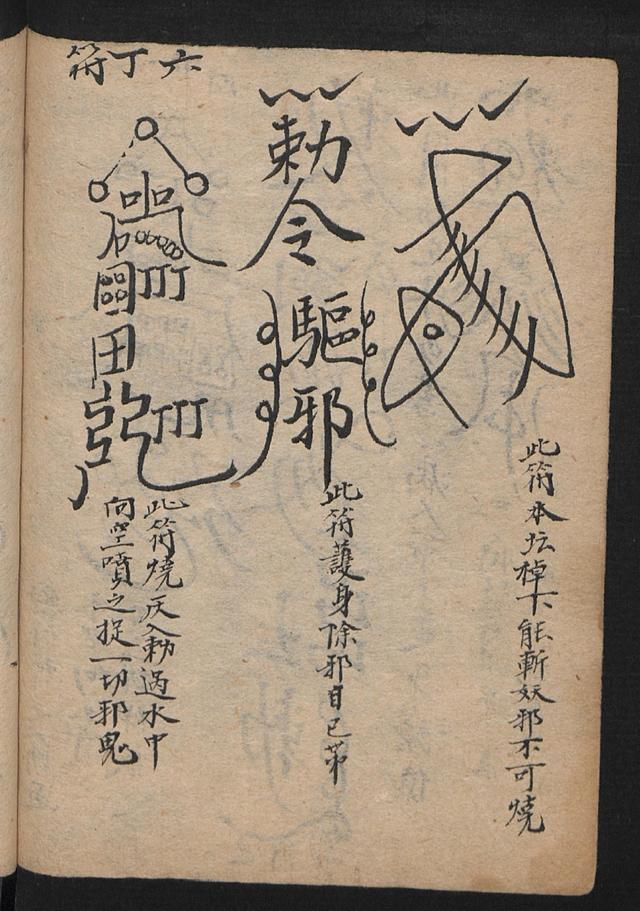 六丁符
此符本坛棹下能斬妖邪不可燒
勅令
驅邪
此符護身除邪自已帶
品
石
田
此符燒灰入勅過水中
向空噴之捉一切邪鬼